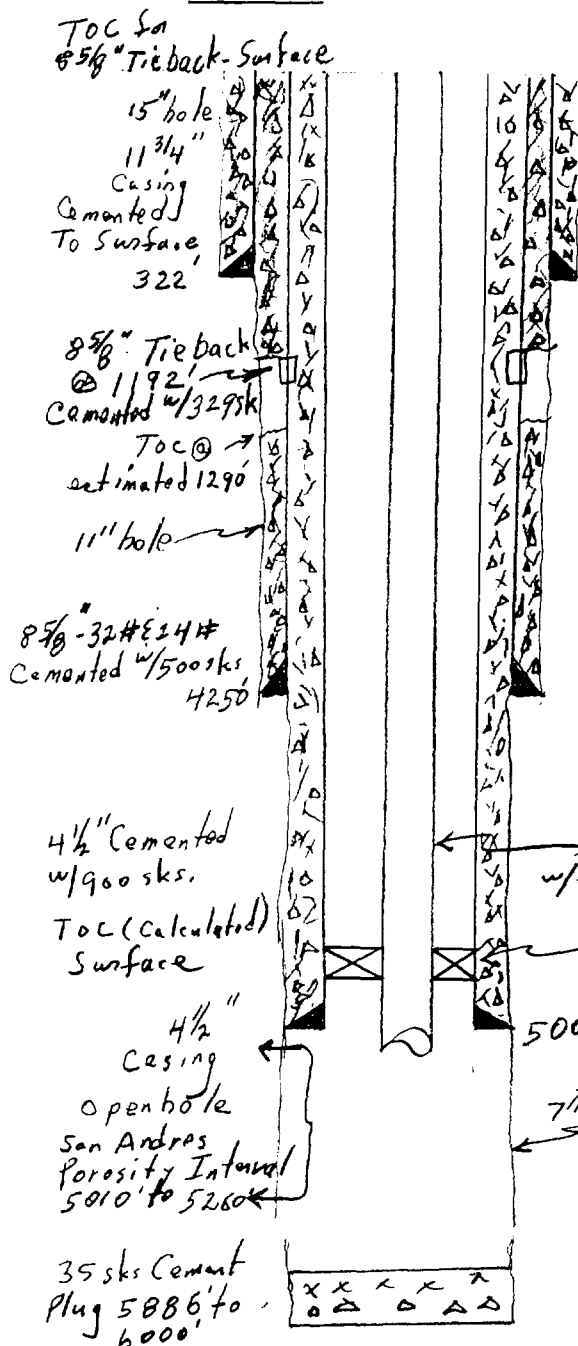 TOC for
8 5/8" Tieback-Surface
15" hole
11 3/4"
Casing
Cemented
To Surface
322'
8 5/8" Tieback
@ 1192'
Cemented w/329sk
TOC @
estimated 1290'
11" hole
8 5/8"-32#&24#
Cemented w/500sks
4250'
4 1/2" Cemented
w/900 sks.
w/
TOC (Calculated)
Surface
4 1/2"
Casing
500
openhole
San Andres
Porosity Interval
5010' to 5260'
35 sks Cement
Plug 5886' to
6000'